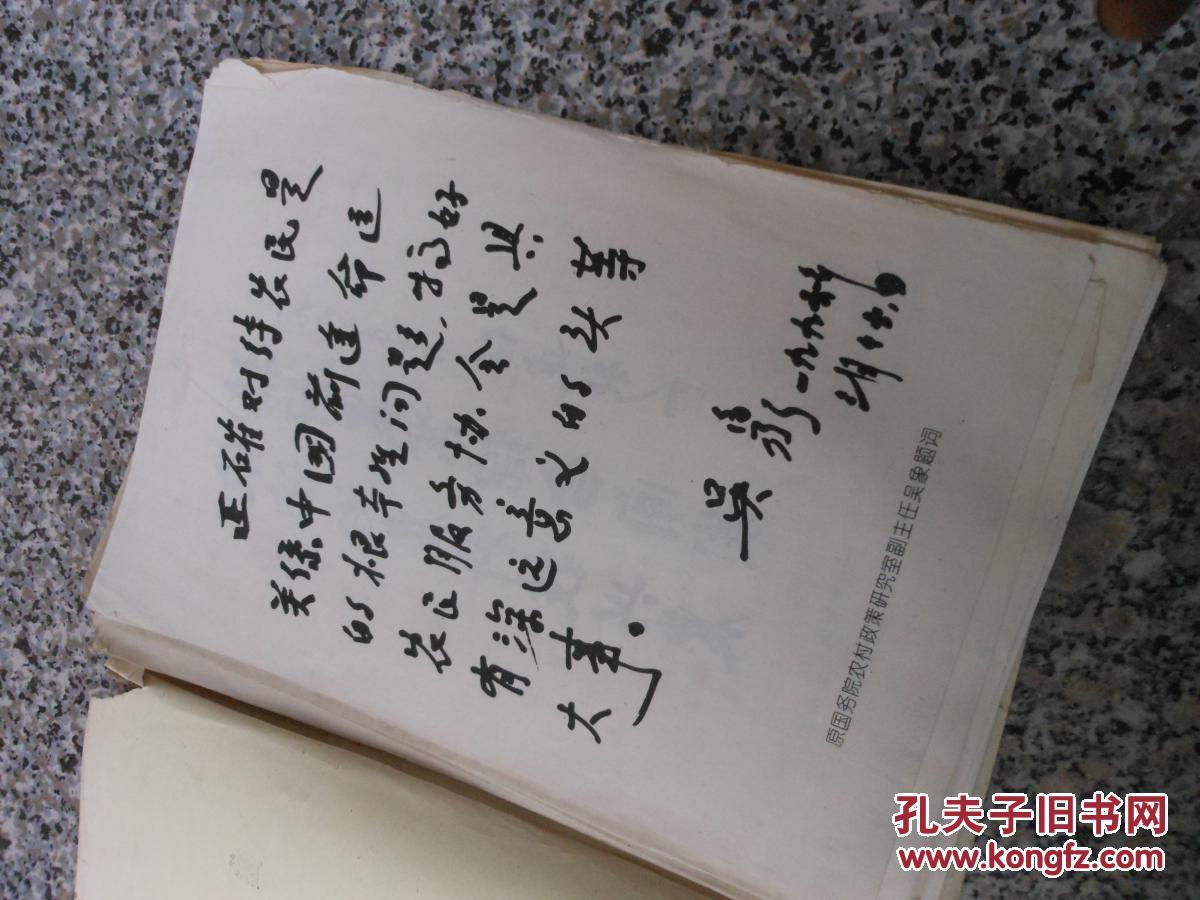 正确对待农民是
关系中国前途命运
的根本性问题，搞好
农服务协会是具
有深远意义的头等
大事。
吴象 一九九年
月十日
原国务院农村政策研究室副主任吴象题词
孔夫子旧书网
www.kongfz.com